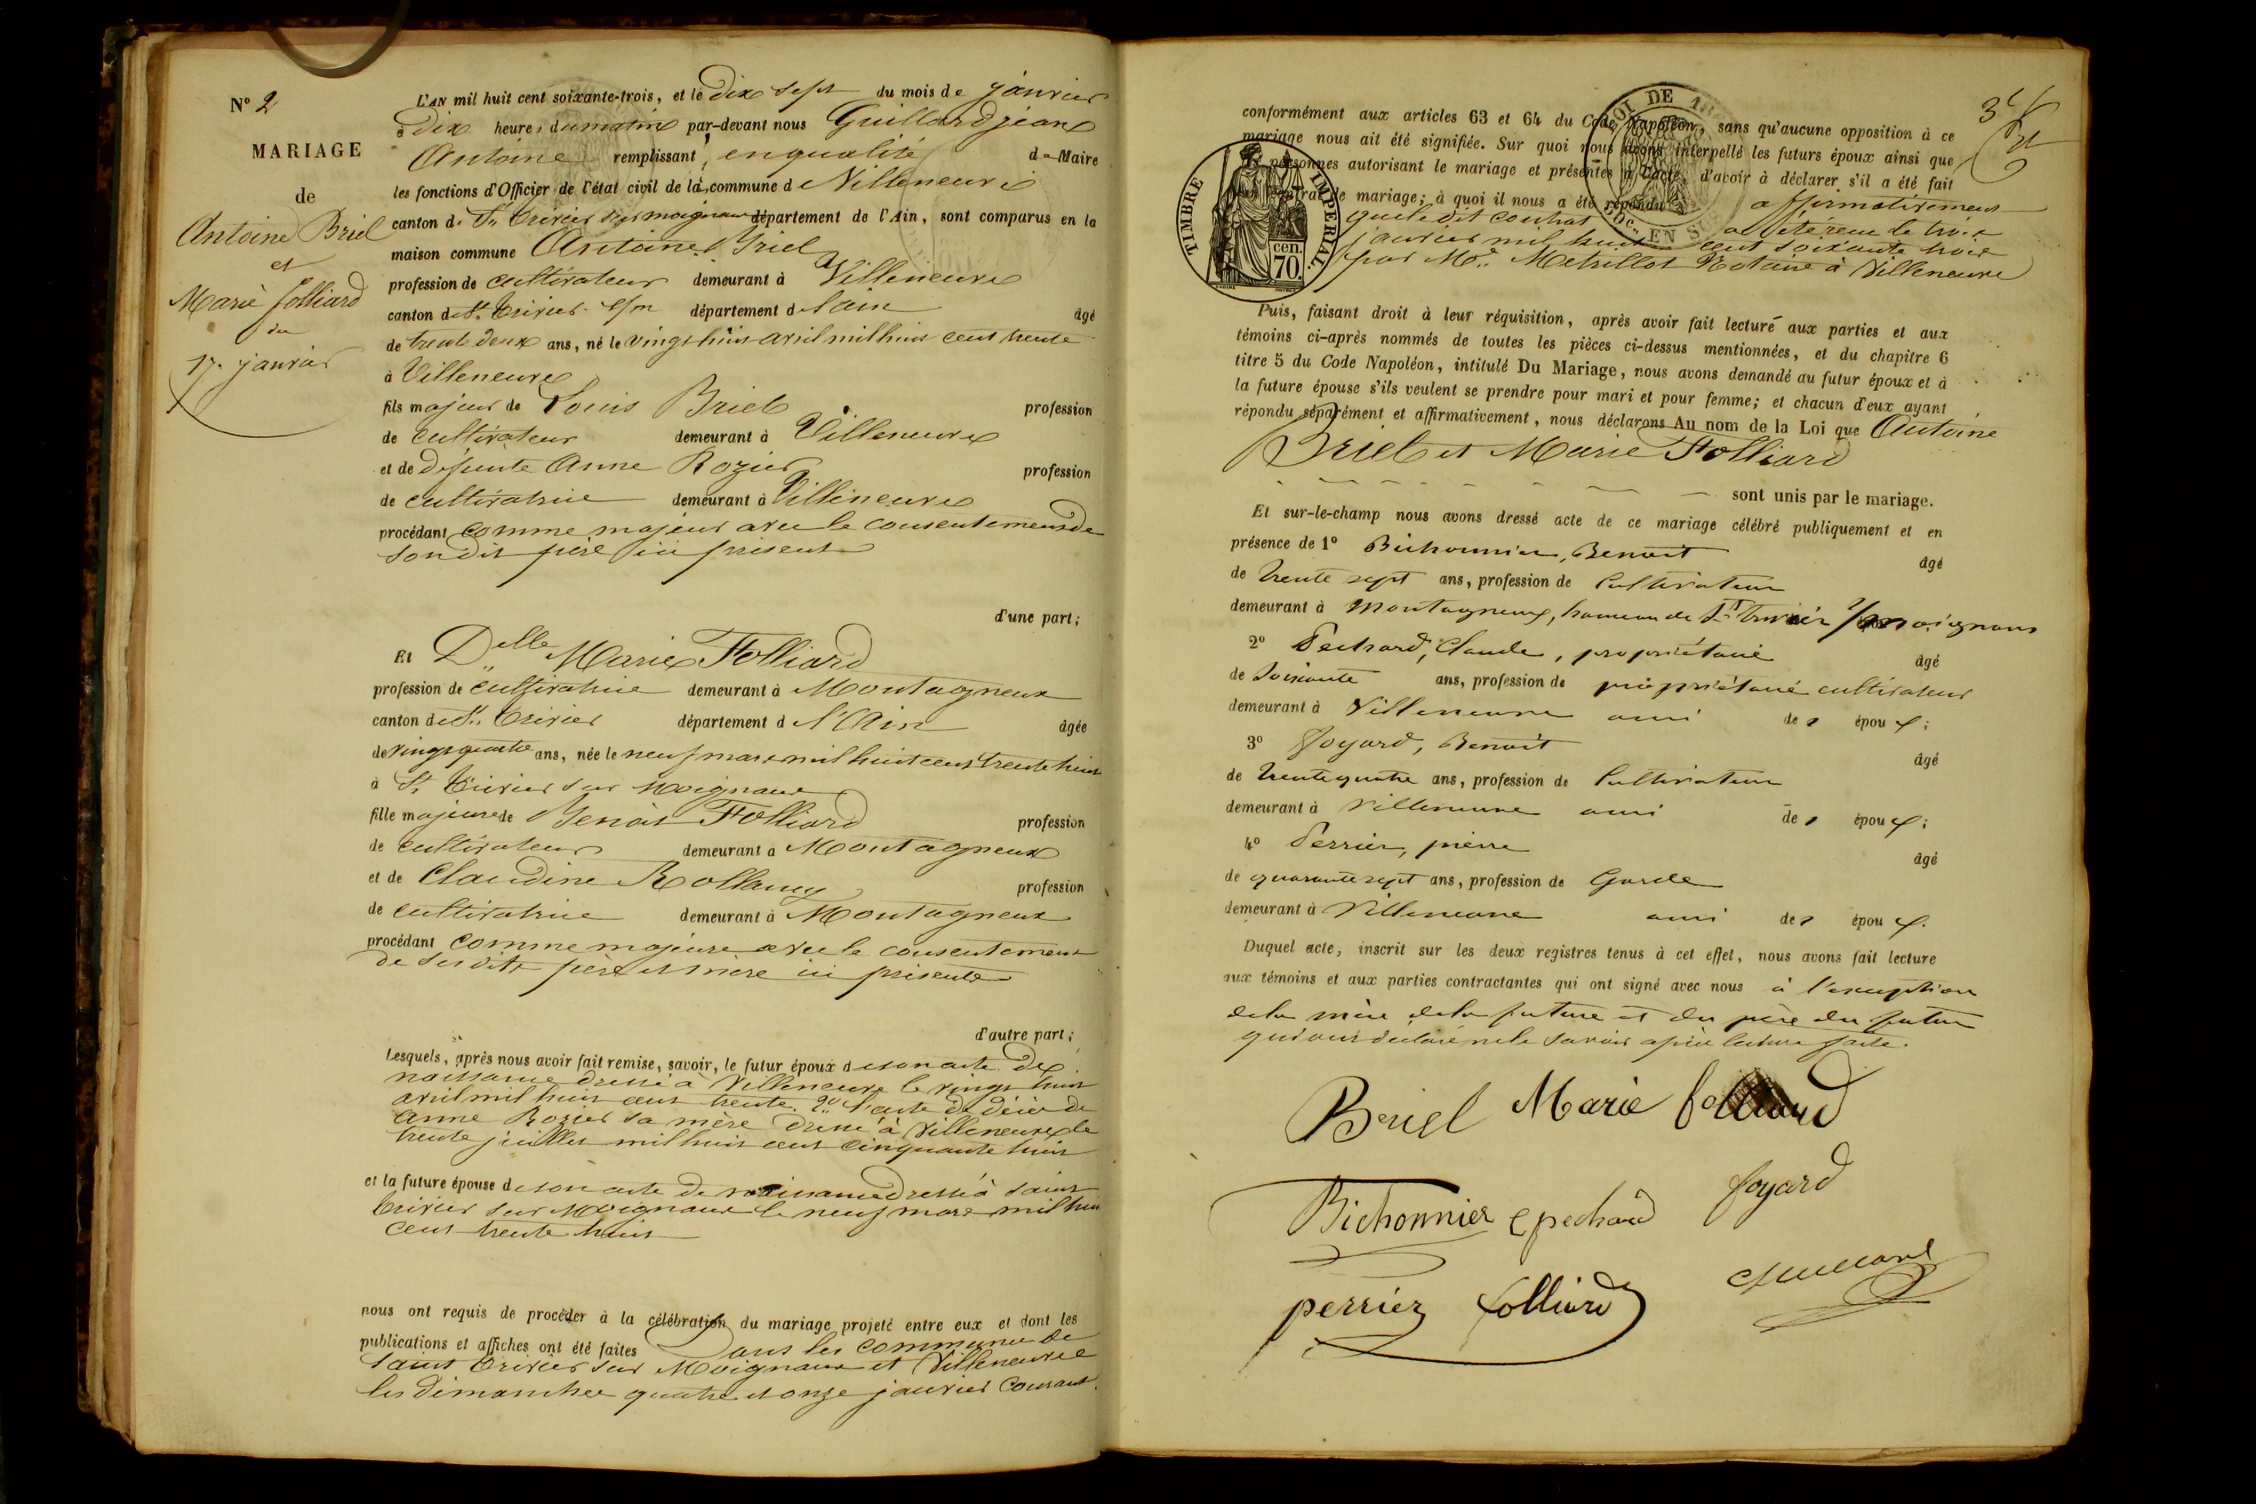 N° 2
MARIAGE
de
Antoine Briel
et
Marie folliard
du
17. janvier
L'AN mil huit cent soixante-trois, et le dix sept du mois de janvier
à dix heures du matin par-devant nous Guillard jean
Antoine remplissant, en qualité de Maire
les fonctions d'Officier de l'état civil de la commune de Villeneuve
canton de St. Trivier sur moignans département de l'Ain, sont comparus en la
maison commune Antoine Briel
profession de cultivateur demeurant à Villeneuve
canton de St. Trivier s/m département de l'ain âgé
de trente deux ans, né le vingt huit avril mil huit cent trente
à Villeneuve
fils majeur de Louis Briel profession
de cultivateur demeurant à Villeneuve
et de défunte Anne Rozier profession
de cultivatrice demeurant à Villeneuve
procédant comme majeur avec le consentement de
son dit père ici présent
d'une part;
Et Delle Marie Folliard
profession de cultivatrice demeurant à Montagneux
canton de St. Trivier département de l'Ain âgée
de vingt quatre ans, née le neuf mars mil huit cent trente huit
à St. Trivier sur Moignans
fille majeure de Benoît Folliard profession
de cultivateur demeurant à Montagneux
et de Claudine Rollamy profession
de cultivatrice demeurant à Montagneux
procédant comme majeure avec le consentement
de ses dits père et mère ici présents
d'autre part;
Lesquels, après nous avoir fait remise, savoir, le futur époux de son acte de
naissance dressé à Villeneuve le vingt huit
avril mil huit cent trente. 2° l'acte de décès de
Anne Rozier sa mère dressé à Villeneuve le
trente juillet mil huit cent cinquante huit
et la future épouse de son acte de naissance dressé à saint
Trivier sur Moignans le neuf mars mil huit
cent trente huit
nous ont requis de procéder à la célébration du mariage projeté entre eux et dont les
publications et affiches ont été faites Dans les commune de
saint Trivier sur Moignans et Villeneuve
les dimanches quatre et onze janvier courant.
3e
conformément aux articles 63 et 64 du Code Napoléon, sans qu'aucune opposition à ce
mariage nous ait été signifiée. Sur quoi nous avons interpellé les futurs époux ainsi que
personnes autorisant le mariage et présentes à l'acte, d'avoir à déclarer s'il a été fait
contrat de mariage; à quoi il nous a été répondu affirmativement
que le dit contrat a été reçu le trois
janvier mil huit cent soixante trois
par Me. Metrillot Notaire à Villeneuve
TIMBRE IMPÉRIAL.
70 cen.
LOI DE
EN SUS
Puis, faisant droit à leur réquisition, après avoir fait lecture aux parties et aux
témoins ci-après nommés de toutes les pièces ci-dessus mentionnées, et du chapitre 6
titre 5 du Code Napoléon, intitulé Du Mariage, nous avons demandé au futur époux et à
la future épouse s'ils veulent se prendre pour mari et pour femme; et chacun d'eux ayant
répondu séparément et affirmativement, nous déclarons Au nom de la Loi que Antoine
Briel et Marie Folliard
sont unis par le mariage.
Et sur-le-champ nous avons dressé acte de ce mariage célébré publiquement et en
présence de 1° Bichonnier, Benoit âgé
de trente sept ans, profession de Cultivateur
demeurant à Montagneux, hameau de St. Trivier s/moignans
2° Pechard, Claude, propriétaire âgé
de soixante ans, profession de propriétaire cultivateur
demeurant à Villeneuve ami des époux;
3° Foyard, Benoit âgé
de trente quatre ans, profession de Cultivateur
demeurant à Villeneuve ami des époux;
4° Perrier, pierre âgé
de quarante sept ans, profession de Garde
demeurant à Villeneuve ami des époux.
Duquel acte, inscrit sur les deux registres tenus à cet effet, nous avons fait lecture
aux témoins et aux parties contractantes qui ont signé avec nous à l'exception
de la mère de la future et du père du futur
qui ont déclaré ne le savoir après lecture faite.
Briel Marie folliard
Bichonnier C pechard foyard
perrier folliard